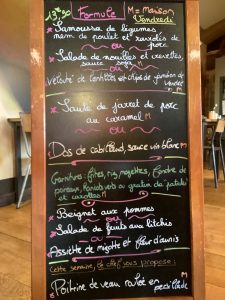 13€50 Formule M = Maison
Vendredi
Samoussa de légumes,
nem de poulet et raviolis de
porc
ou
Salade de nouilles et crevettes,
sauce soja M
ou
Velouté de lentilles et chips de jambon de
Vendée M
Sauté de jarret de porc
au caramel M
ou
Dos de cabillaud, sauce vin blanc M
Garnitures: frites, riz, mogettes, fondre de
poireaux, haricots verts ou gratin de patate
et carottes M
Beignet aux pommes
ou
Salade de fruits aux litchis
ou
Assiette de migotte et fleur d'anis
Cette semaine, le chef vous propose:
Poitrine de veau